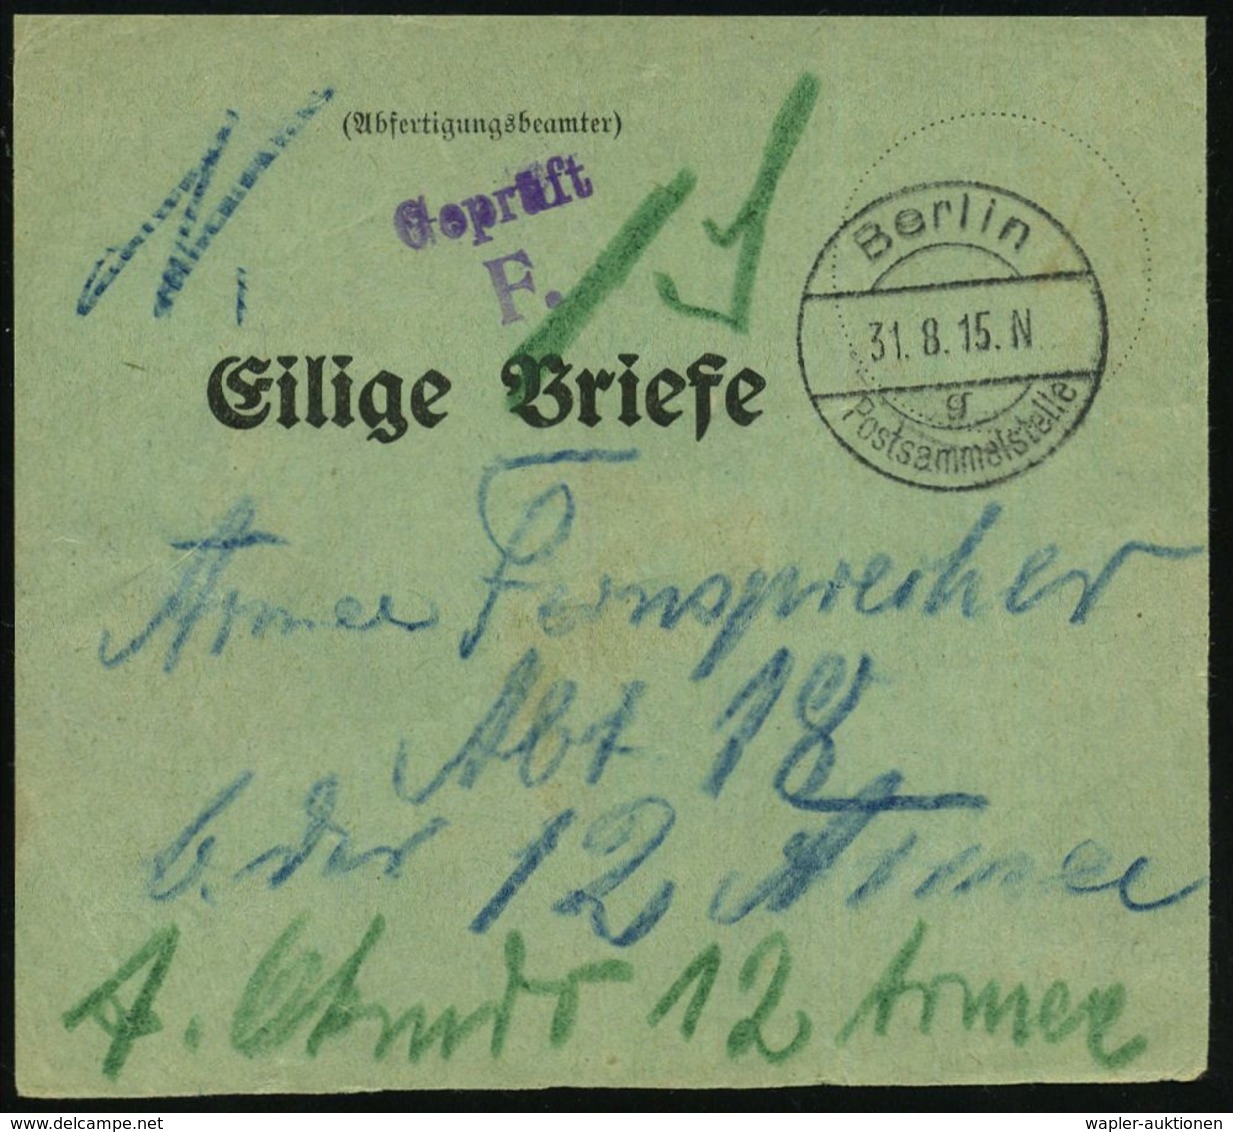 (Abfertigungsbeamter)
Geprüft
F.
Berlin
31. 8. 15. N
g
Postsammelstelle
Eilige Briefe
Armee Fernsprecher
Abt 18
b. der 12 Armee
A. 12 Armee
wapler-auktionen